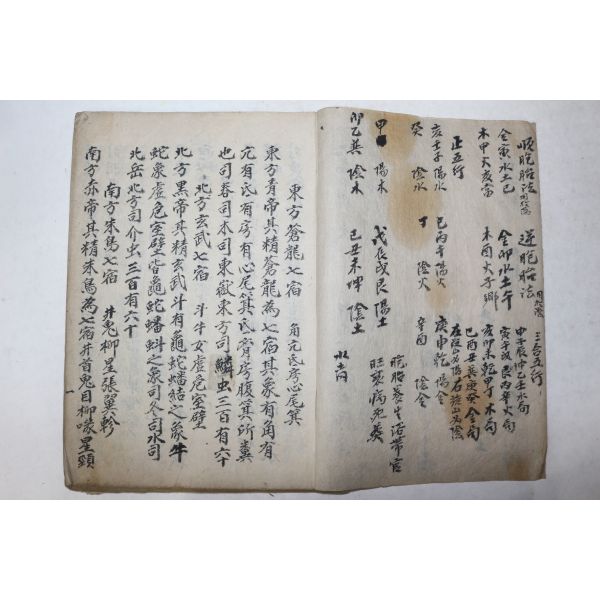 順胞胎法 逆胞胎法 三合五行
金寅水土巳 金卯水土午 申子辰坤乙壬水局
木申火亥當 木酉火子鄉 寅午戌艮丙辛火局
亥卯未乾甲丁木局
巳酉丑巽庚癸金局
正五行 左旋山为陽右旋山为陰
亥壬子 陽水 巳丙午 陽火 庚申乾 陽金
癸 陰水 丁 陰火 辛酉 陰金
甲 陽木 戊辰戌艮 陽土 胞胎養生浴帶官
卯乙巽 陰木 己丑未坤 陰土 旺衰病死葬
東方蒼龍七宿 角亢氐房心尾箕
東方青帝其精蒼龍為七宿其象有角有
亢有氐有房有心尾箕氐胷房腹箕所糞
也司春司木司東嶽東方司鱗虫三百有六十
北方玄武七宿 斗牛女虛危室壁
北方黑帝其精玄武斗有龜蛇蟠結之象牛
蛇象虛危室壁皆龜蛇蟠蚪之象司冬司水司
北岳北方司介虫三百有六十
南方朱鳥七宿 井鬼柳星張翼軫
南方赤帝其精朱鳥為七宿井首鬼目柳喙星頸